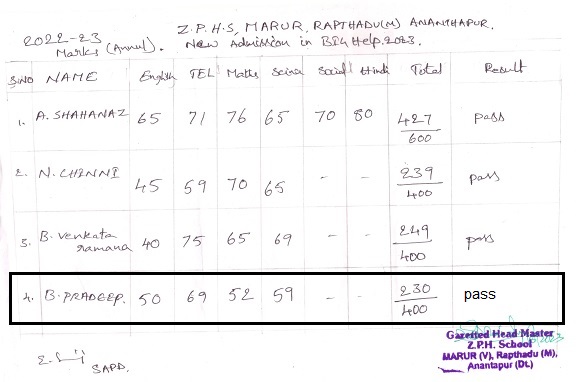 2022-23
Marks (Annul).
Z.P.H.S, MARUR, RAPTHADU(M) ANANTHAPUR.
New Admission in Help.2023.
S.NO NAME English TEL Maths Scins Social Hindi Total Result
1. A. SHAHANAZ 65 71 76 65 70 80 427/600 pass
2. N. CHINNI 45 59 70 65 - - 239/400 pass
3. B. Venkata ramana 40 75 65 69 - - 249/400 pass
4. B. PRADEEP. 50 69 52 59 - - 230/400 pass
Gazetted Head Master
Z.P.H. School
MARUR (V), Rapthadu (M),
Anantapur (Dt.)
SAPD.